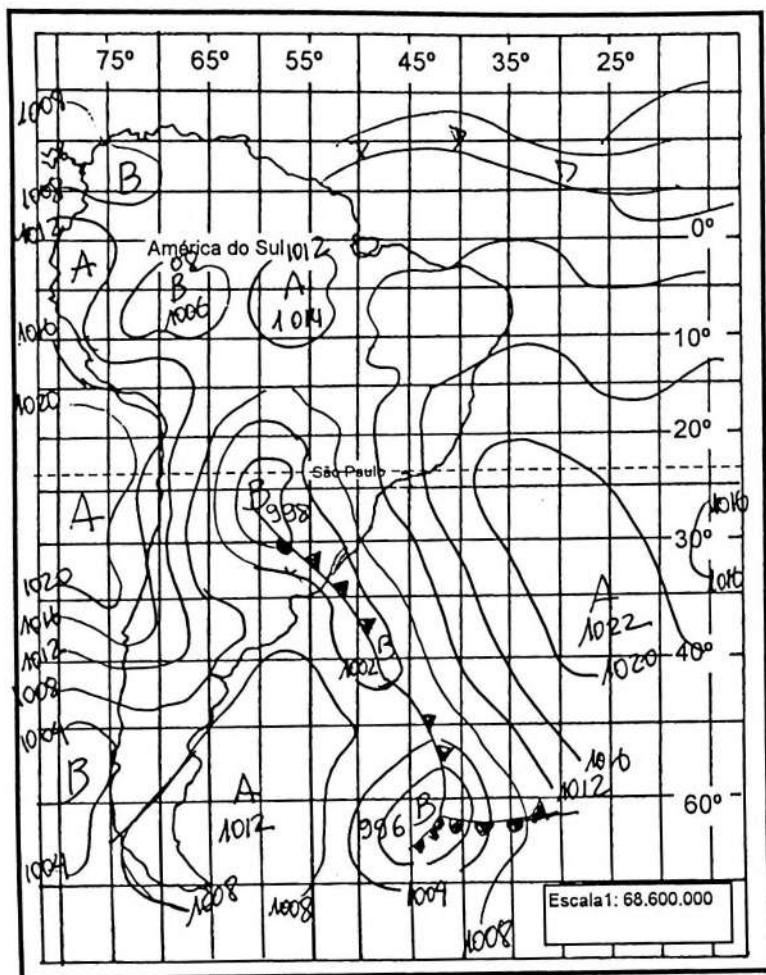 75° 65° 55° 45° 35° 25°
1008
B
1008
1012
0°
América do Sul 1012
A
08
B
1006
A
1014
1016
10°
1020
20°
São Paulo
B
998
A
1016
30°
1020
1016
A
1022
1016
1012
B
1002
1020
40°
1008
1004
B
A
1012
1016
1012
996
B
60°
1004
1008
1008
1004
1008
Escala1: 68.600.000